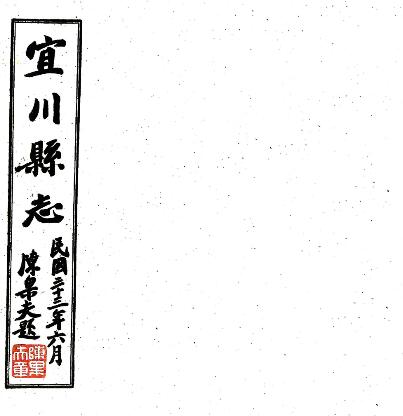 宜川縣志
民國三十三年六月
陳果夫題
陳果
夫章